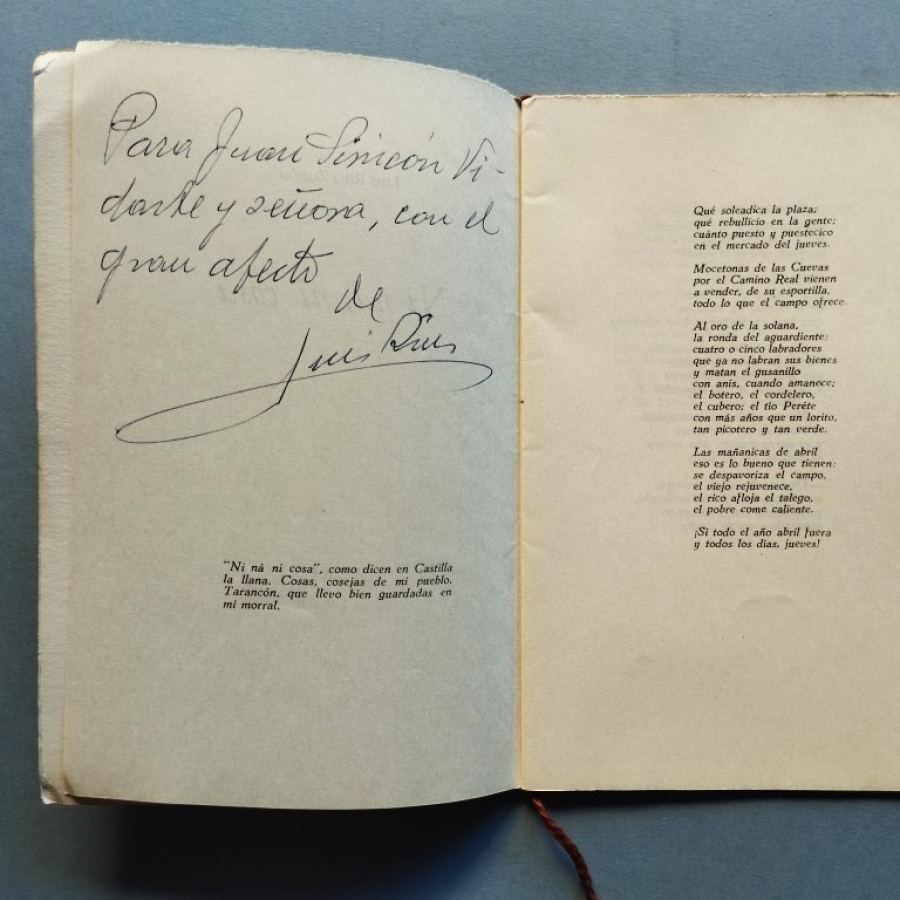 Para Juan Simeón Vi-
darte y señora, con el
gran afecto
de
Luis Rius
"Ni ná ni cosa", como dicen en Castilla
la llana. Cosas, cosejas de mi pueblo,
Tarancón, que llevo bien guardadas en
mi morral.
Qué soleadica la plaza;
qué rebullicio en la gente;
cuánto puesto y puestecico
en el mercado del jueves.
Mocetonas de las Cuevas
por el Camino Real vienen
a vender, de su esportilla,
todo lo que el campo ofrece.
Al oro de la solana,
la ronda del aguardiente:
cuatro o cinco labradores
que ya no labran sus bienes
y matan el gusanillo
con anís, cuando amanece;
el botero, el cordelero,
el cubero; el tío Peréte
con más años que un lorito,
tan picotero y tan verde.
Las mañanicas de abril
eso es lo bueno que tienen:
se despavoriza el campo,
el viejo rejuvenece,
el rico afloja el talego,
el pobre come caliente.
¡Si todo el año abril fuera
y todos los días, jueves!